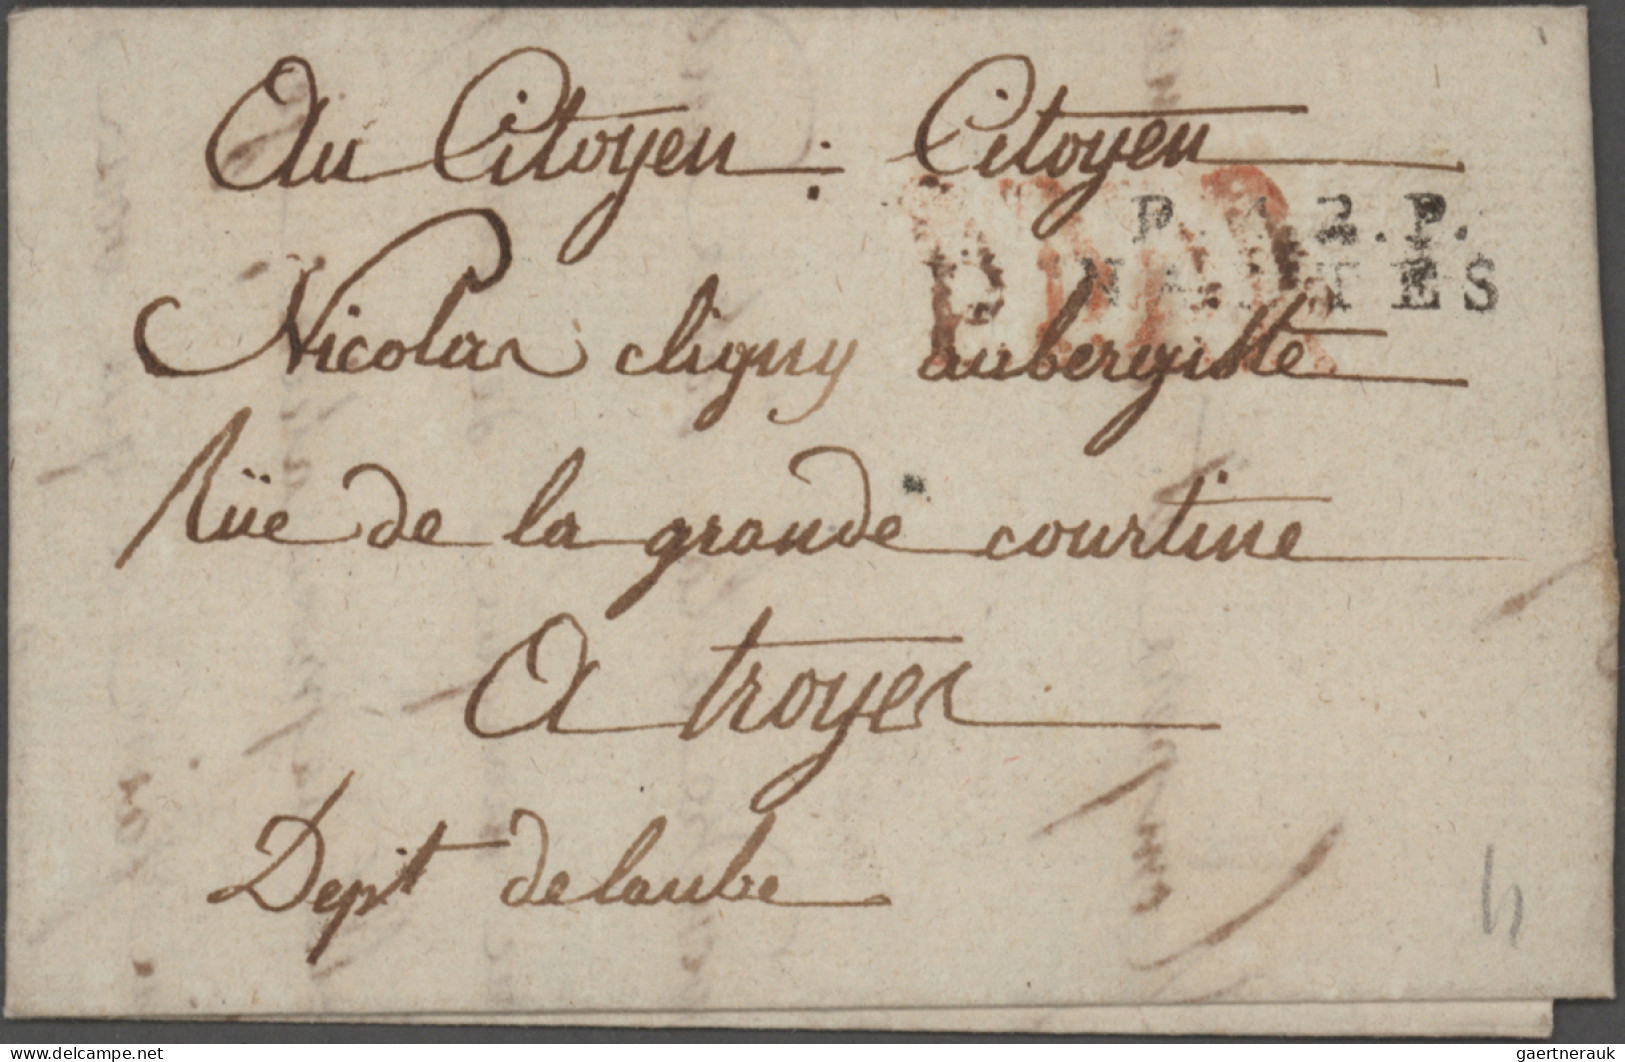 Au Citoyen : Citoyen
P. 42. P.
NANTES
Nicolas cligny aubergiste
Rüe de la grande courtine
A troyes
Dept delaube
delcampe.net
gaertnerauk